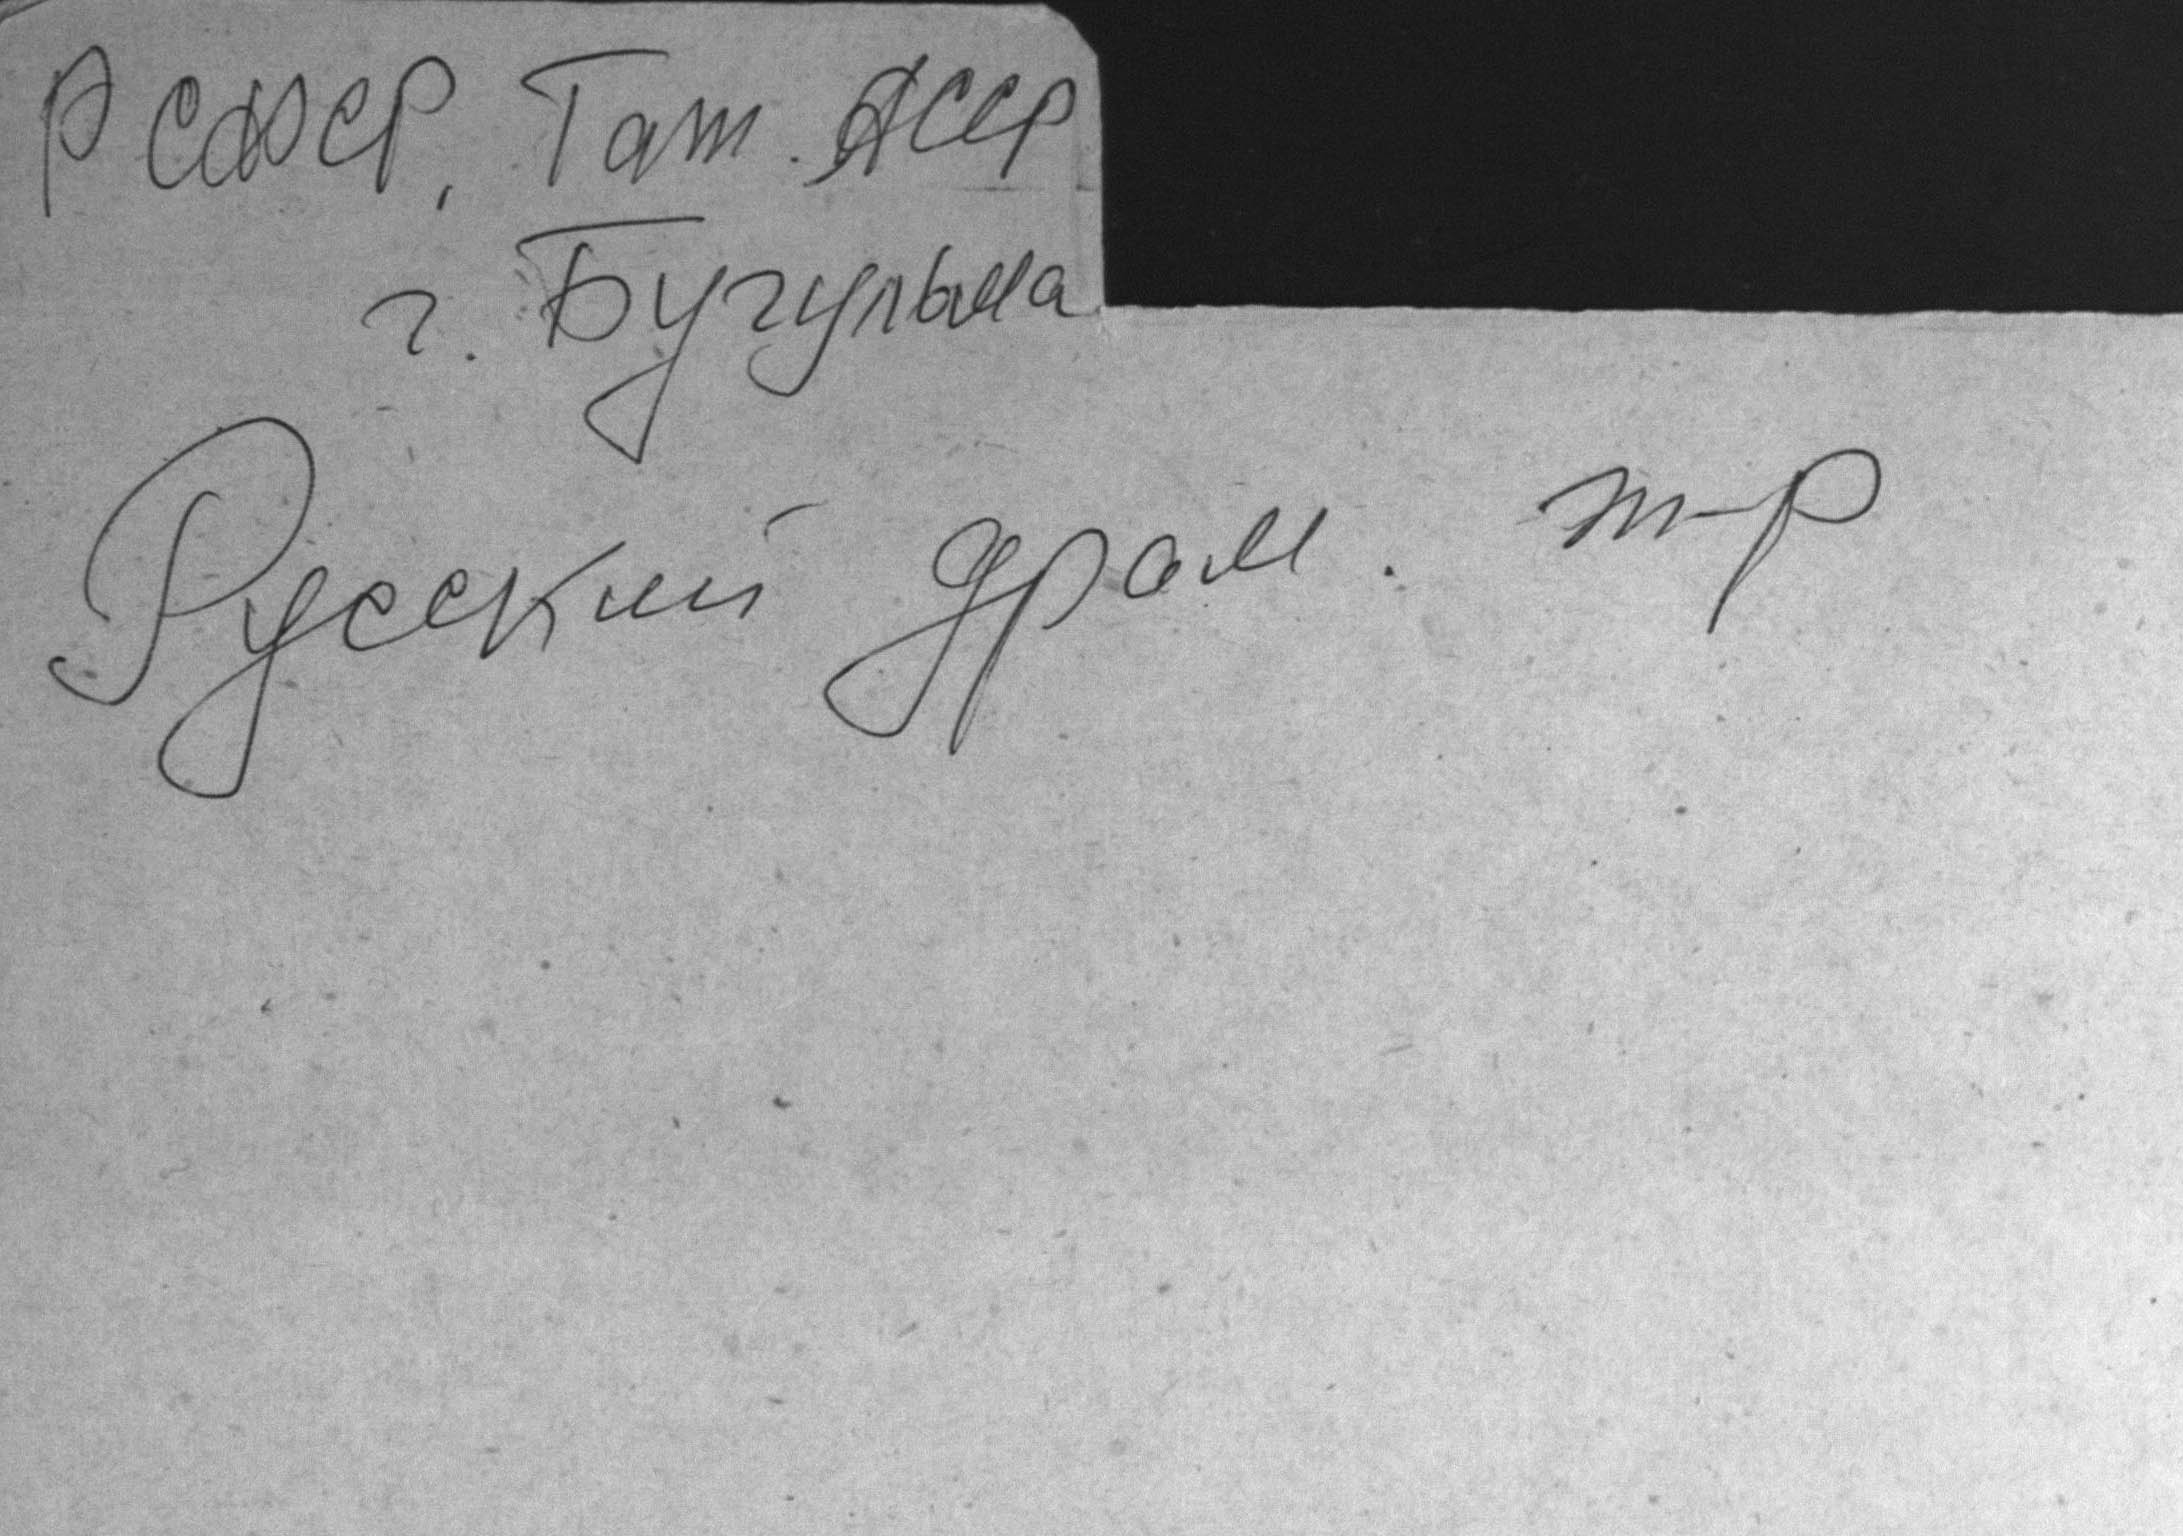 РСФСР, Тат. АССР
г. Бугульма
Русский драм. т-р